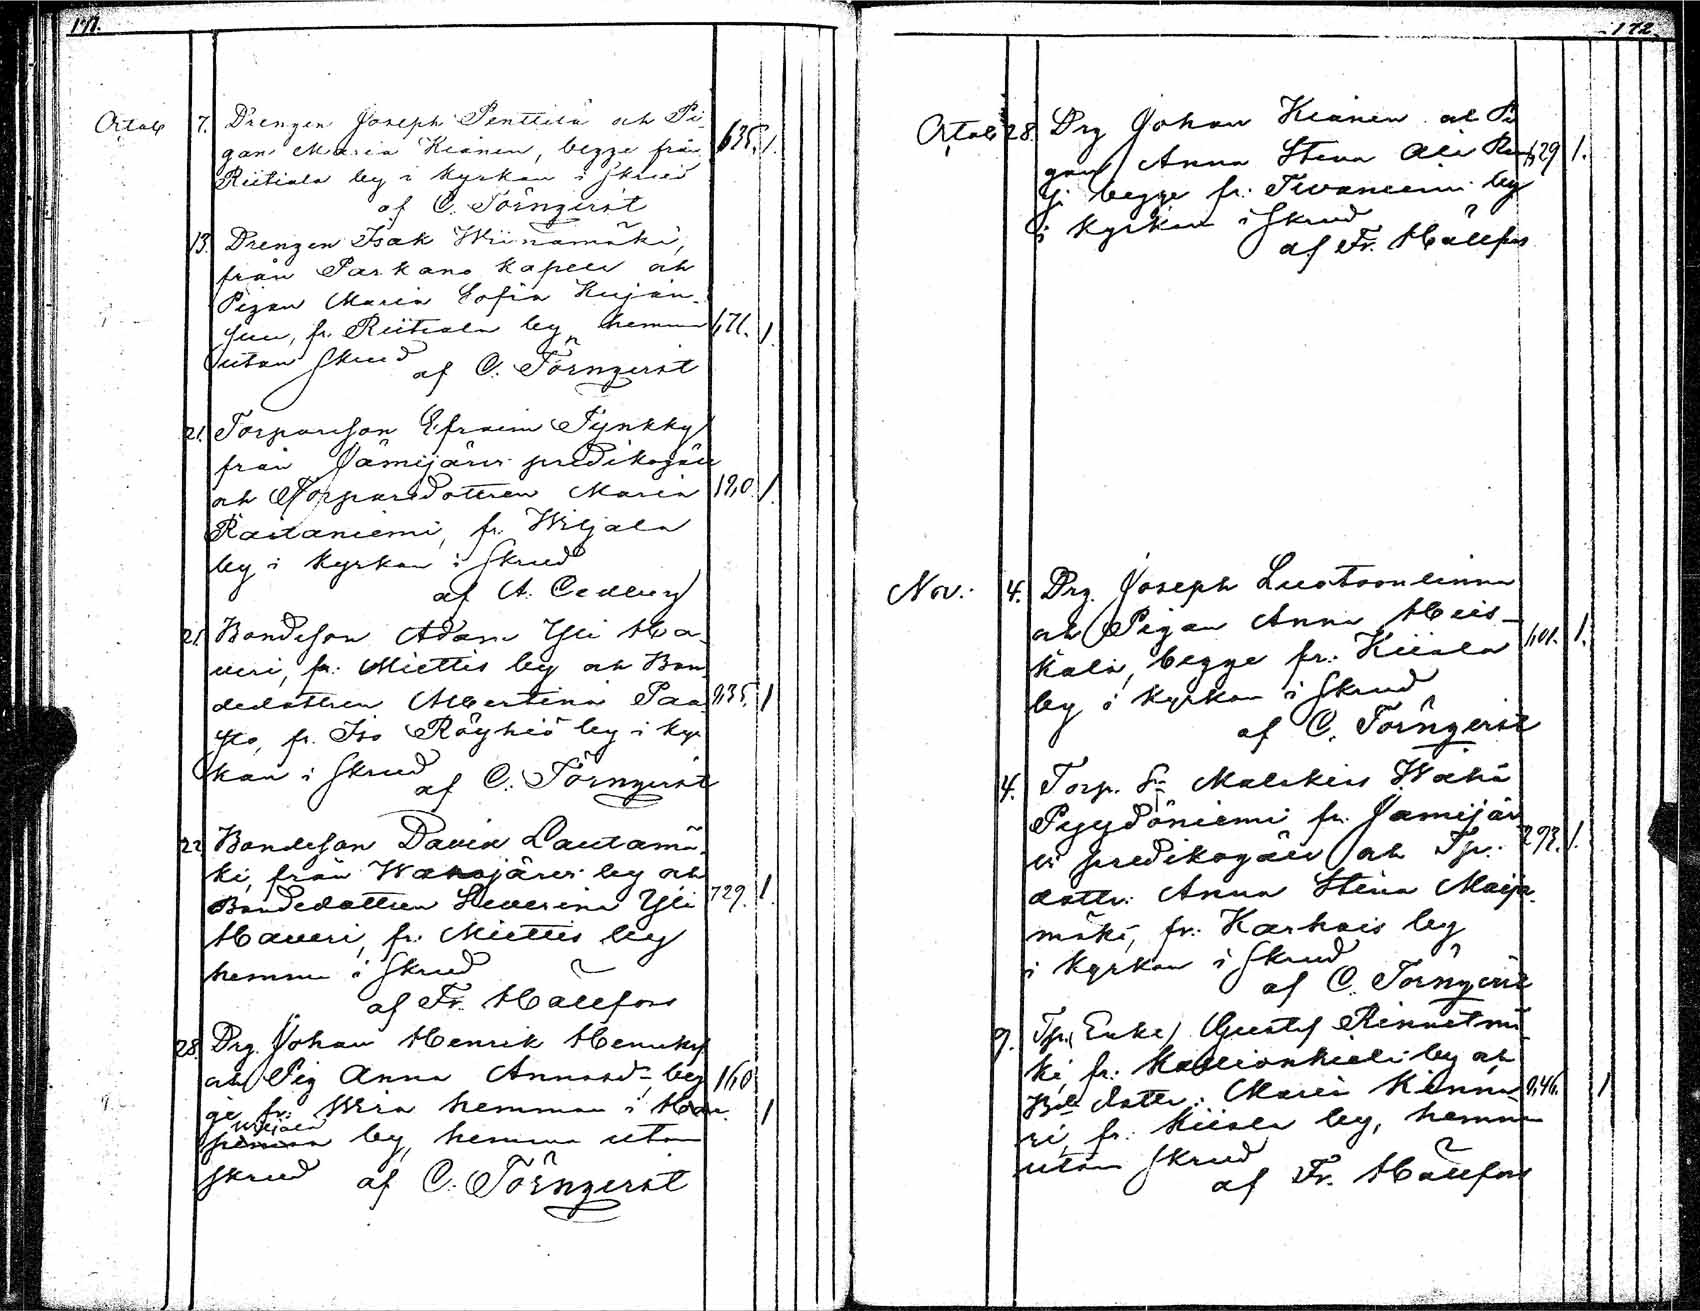 171.
Octob 7. Drengen Joseph Penttilä och Pi-
gan Maria Kianen, begge från 635. 1.
Riitiala by i kyrkan i skrud
af C. Törnqvist
13. Drengen Isak Wiinamäki,
från Parkano kapell och
Pigan Maria Sofia Kujan-
suu, fr. Riitiala by hemma 1,
utan skrud
af C. Törnqvist
21. Torparson Efraim Pynkky
från Jämijärvi predikogäll
och Torparedottren Maria 1
Rastaniemi, fr. Wiljala
by i kyrkan i skrud
af A. Cedberg
21. Bondeson Adam Yli Ha-
veri, fr. Miettis by och Bon-
dedottren Albertina Paa- 1
fr. Iso Röyhiö by i kyr
kan i skrud
af C. Törnqvist
22. Bondeson David Lautamä-
ki, från by och
Bondedottren Severina Yli 729. 1.
Haveri, fr. Miettis by
hemma i skrud
af Fr. Hällfors
28. Drg. Johan Henrik
och Pig Anna Annasdr beg 1
ge fr: hemman i
Wiljala by, hemma utan
skrud af C. Törnqvist
172.
Octob 28. Drg Johan Kianen och Pi
gan Anna Stina Ala 1.
begge fr: by
i kyrkan i skrud
af Fr. Hällfors
Nov. 4. Drg. Joseph Luotoonlinna
och Pigan Anna Heis-
kala, begge fr: Kiiala 1.
by i kyrkan i skrud
af C. Törnqvist
4. Torp. Sn Malakias Wähä
Pyydöniemi fr. Jämijär
vi predikogäll och Tpr. 1.
dottr: Anna Stina Maija-
mäki, fr: Karhois by
i kyrkan i skrud
af C. Törnqvist
9. Tpr. Enkel. Gustaf Rinnetmä
ki, fr: by och
dottr: Maria Kinna- 1
ri, fr: Kiiala by, hemma
utan skrud
af Fr. Hällfors